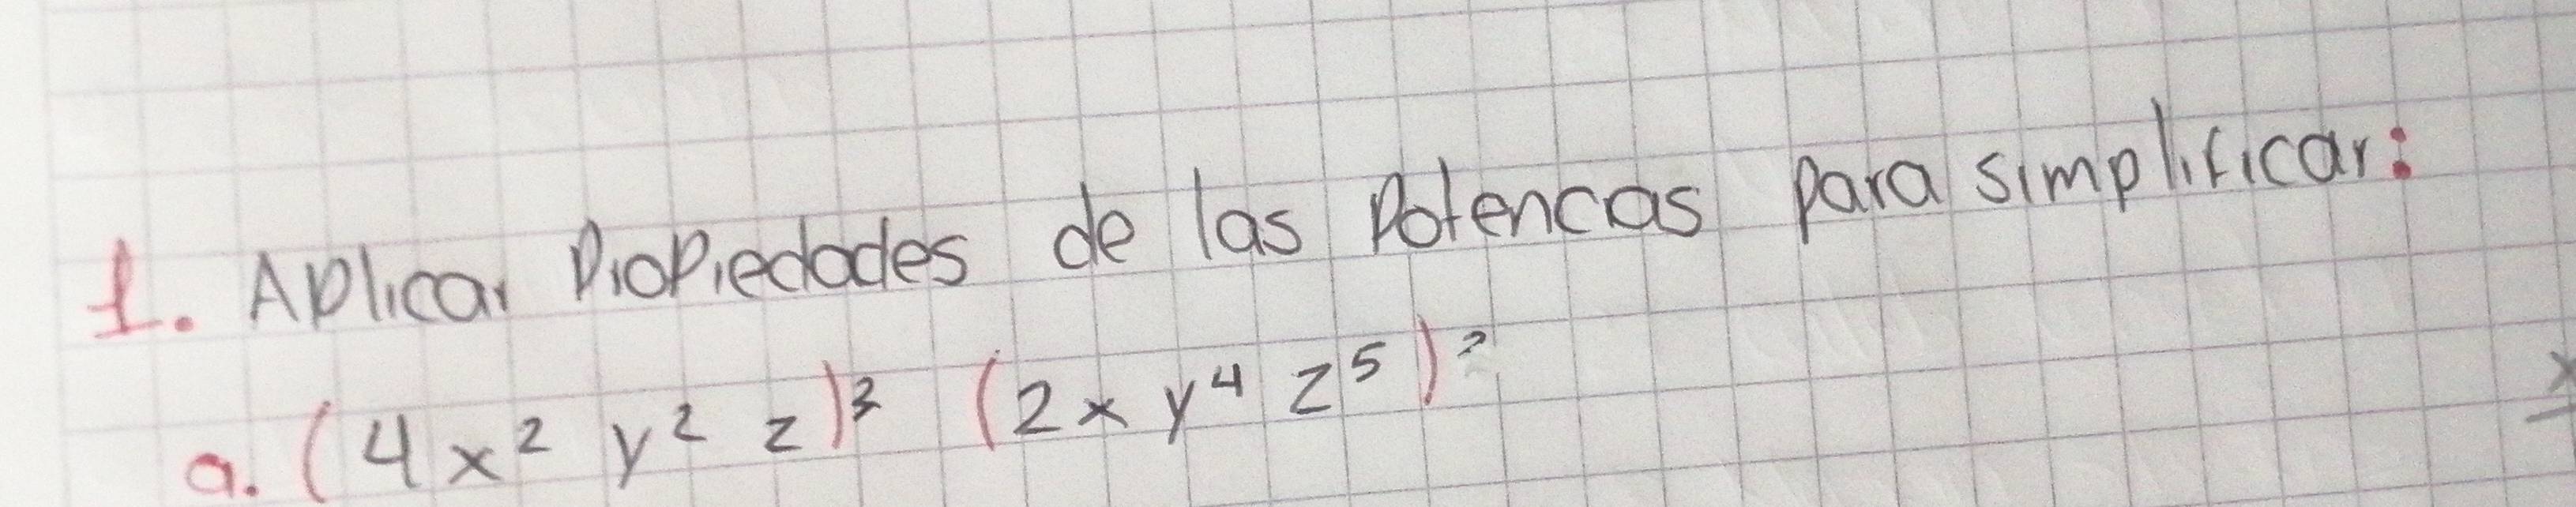 1. Aplicar Propiedades de las Potencas para simplificar:
a. (4x² y² z)³ (2x y⁴ z⁵)²